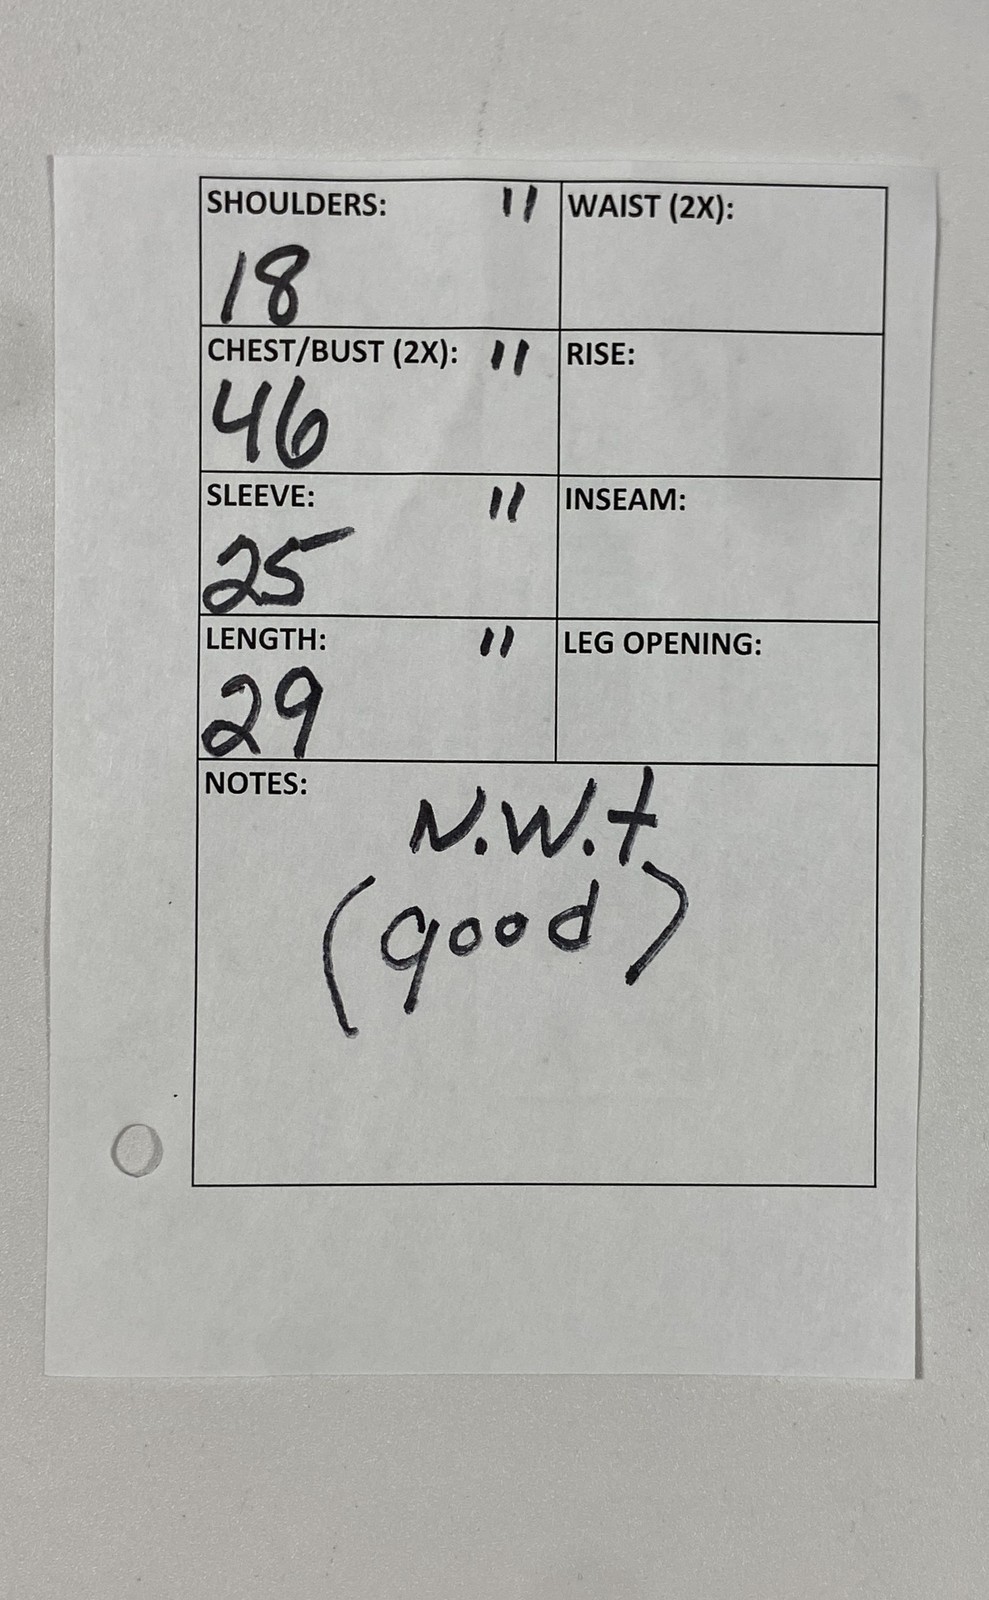 SHOULDERS: "
18
WAIST (2X):
CHEST/BUST (2X): "
46
RISE:
SLEEVE: "
25
INSEAM:
LENGTH: "
29
LEG OPENING:
NOTES:
N.W.t
(good)